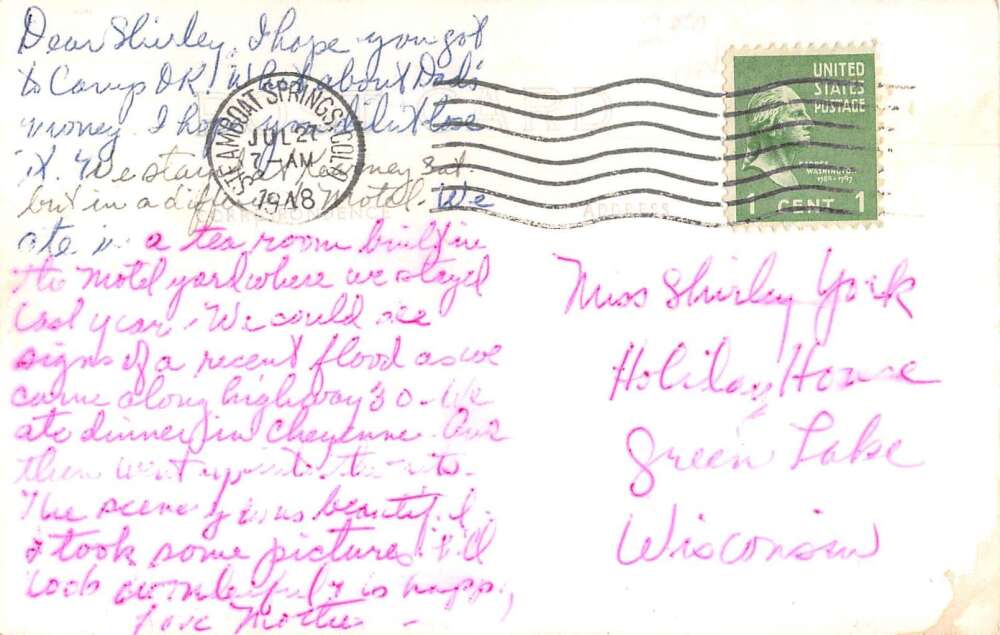 Dear Shirley, I hope you got
to Camp OK! What about Dad's
money. I hope you didn't lose
it. We stayed at Kearney Sat.
but in a different Motel. We
ate in a tea room built in
the motel yard where we stayed
last year. We could see
signs of a recent flood as we
came along highway 30. We
ate dinner in Cheyenne. And
then went up into the mts.
The scenery was beautiful.
I took some pictures.
looks wonderful & is happy,
Love Mother
STEAMBOAT SPRINGS, COLO.
JUL 27
7-AM
1948
CORRESPONDENCE
ADDRESS
UNITED
STATES
POSTAGE
GEORGE
WASHINGTON
1 CENT 1
Miss Shirley York
Holiday House
Green Lake
Wisconsin